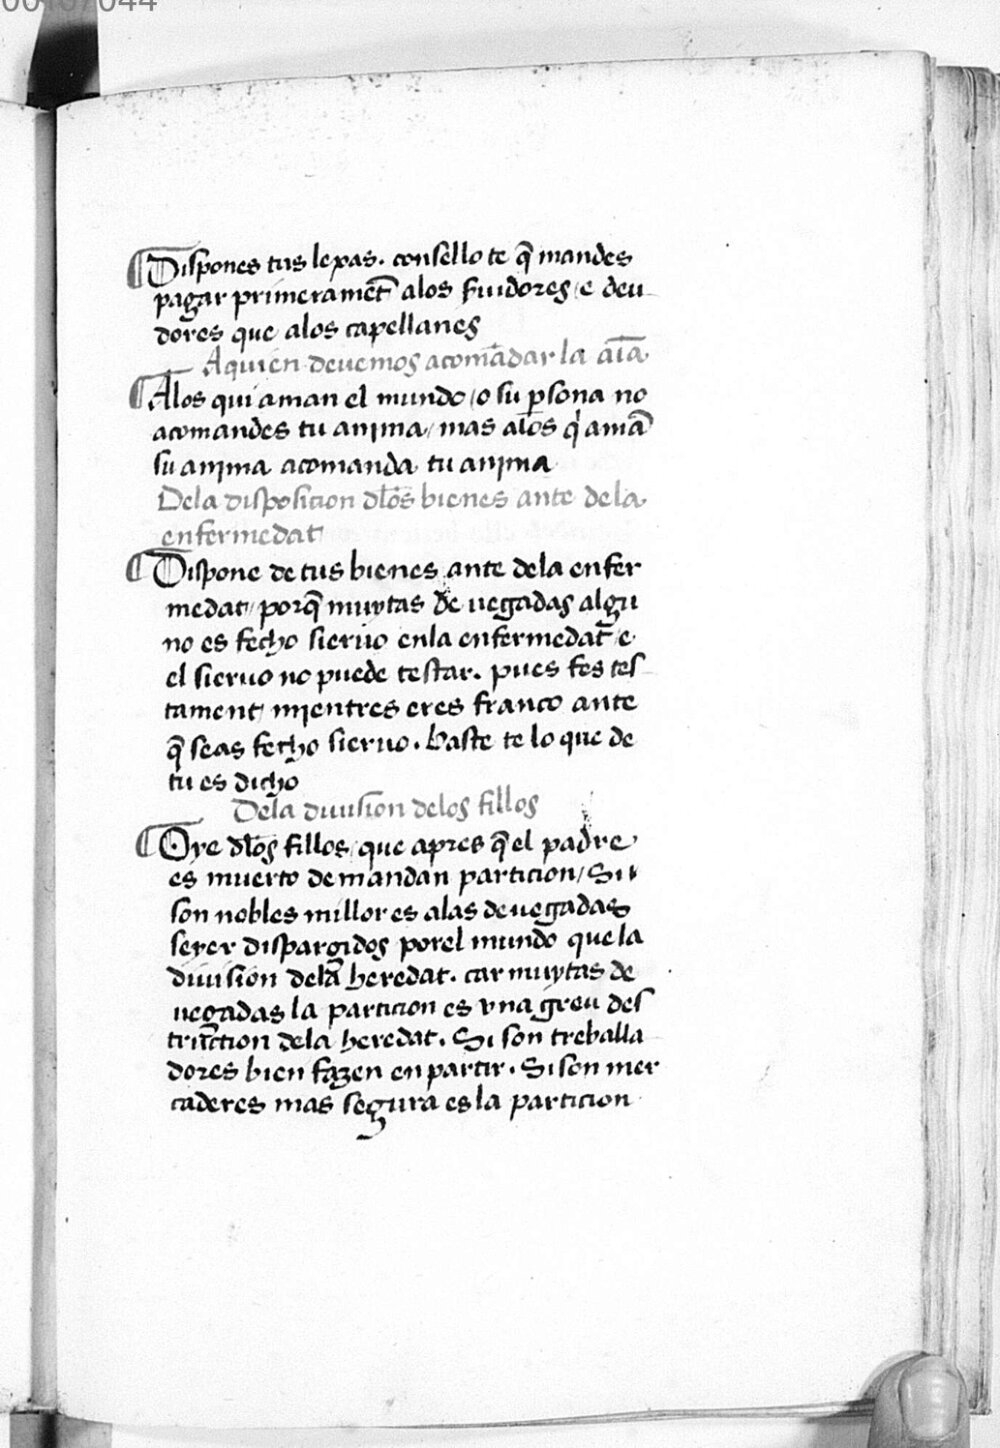 ¶ Dispones tus lexas. consello te q̃ mandes
pagar primeramẽt alos ẜuidores / e deu
dores que alos capellanes
Aquien deuemos acomãdar la aĩa
¶ Alos qui aman el mundo / o su ꝑsona no
acomandes tu anima / mas alos q̇ amã
su anima acomanda tu anima
Dela disposicion dl̃os bienes ante dela
enfermedat
¶ Dispone de tus bienes ante dela enfer
medat / porq̃ muytas de uegadas algu
no es fecho sieruo enla enfermedat / e
el sieruo no puede testar. pues fes tes
tament mientres eres franco ante
q̃ seas fecho sieruo. baste te lo que de
tu es dicho
Dela diuision delos fillos
¶ Oye dl̃os fillos / que apres q̃ el padre
es muerto demandan particion / Si
son nobles millor es alas deuegadas
seyer dispargidos porel mundo que la
diuision dela heredat. car muytas de
uegadas la particion es vna greu des
truction dela heredat. Si son treballa
dores bien fazen en partir. Si son mer
caderes mas segura es la particion